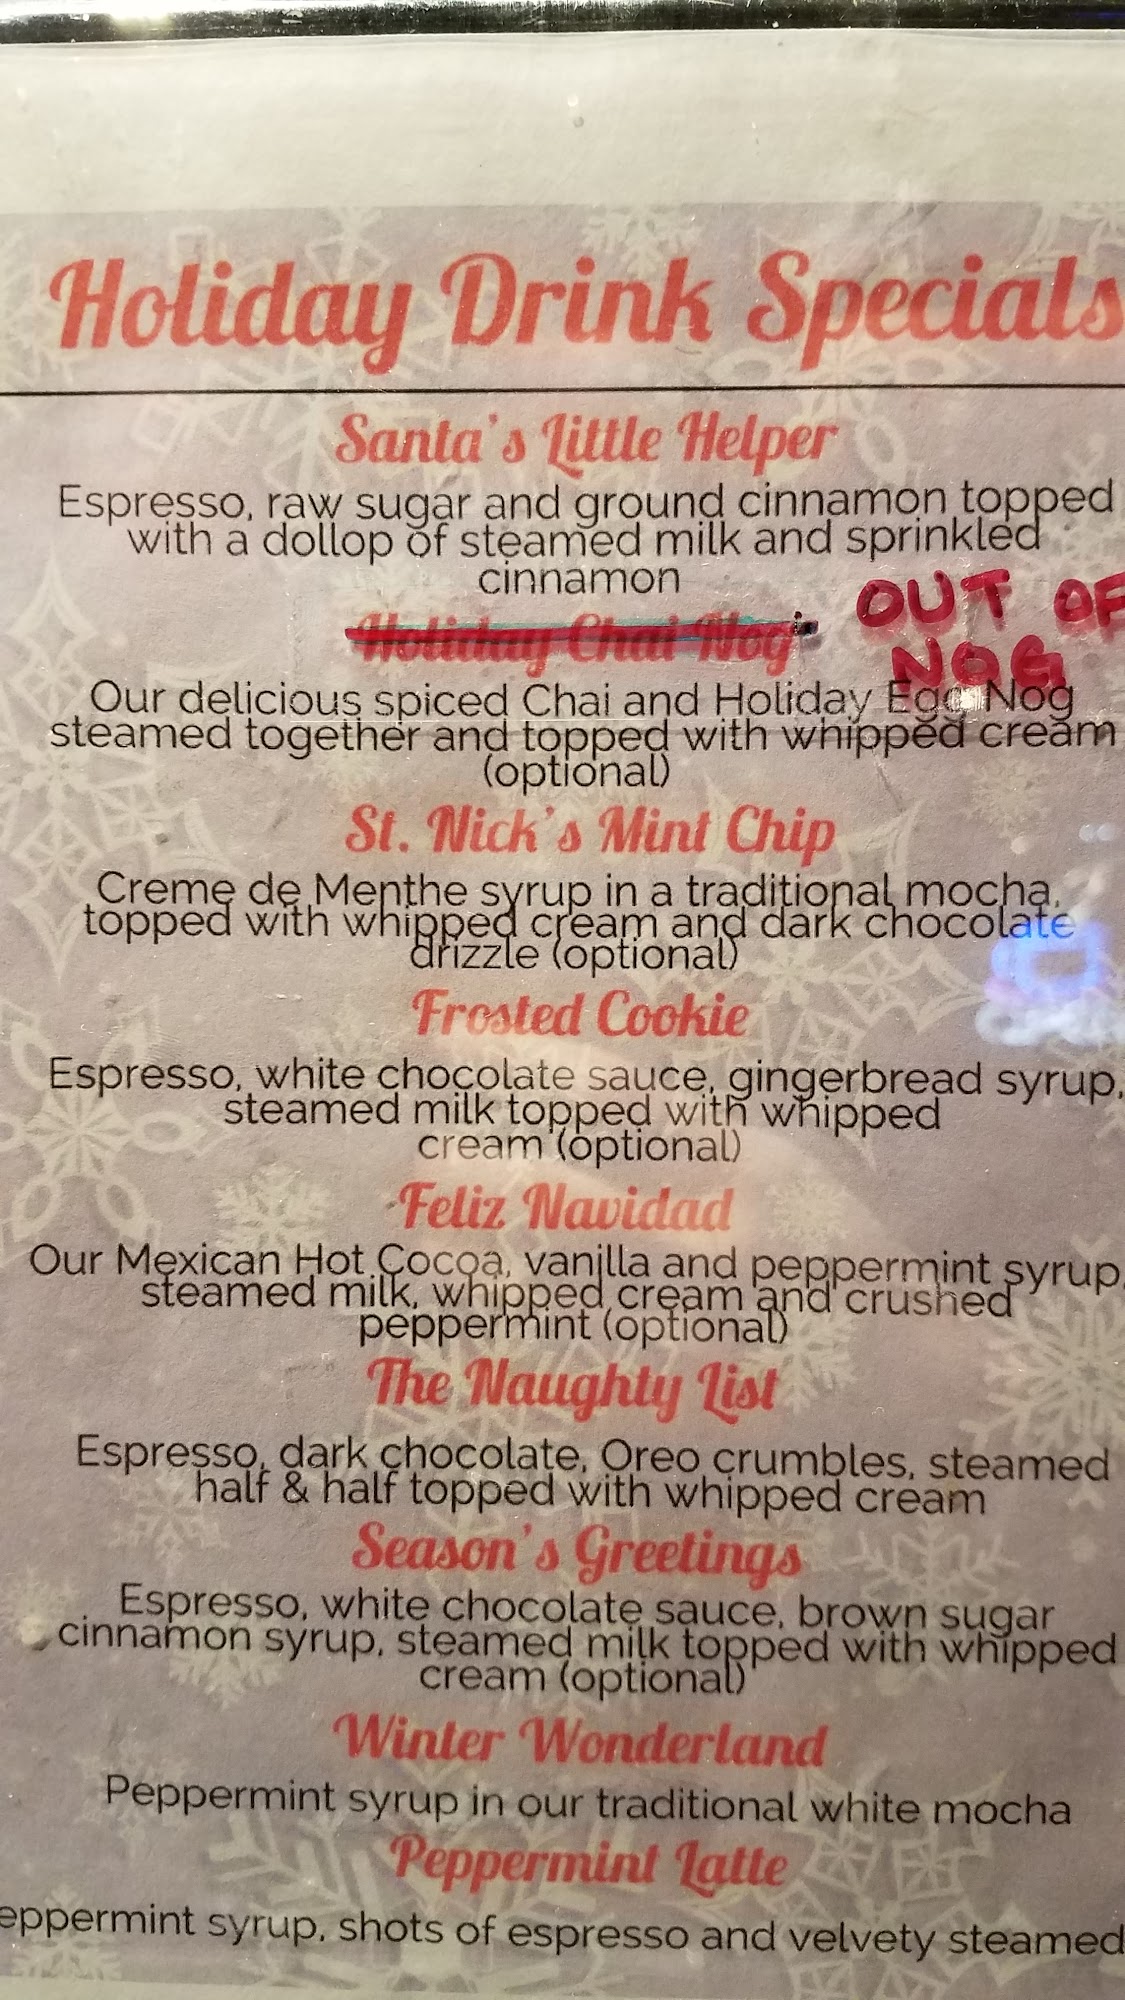 Holiday Drink Specials
Santa's Little Helper
Espresso, raw sugar and ground cinnamon topped
with a dollop of steamed milk and sprinkled
cinnamon
Holiday Chai Nog
OUT OF
NOG
Our delicious spiced Chai and Holiday Egg Nog
steamed together and topped with whipped cream
(optional)
St. Nick's Mint Chip
Creme de Menthe syrup in a traditional mocha,
topped with whipped cream and dark chocolate
drizzle (optional)
Frosted Cookie
Espresso, white chocolate sauce, gingerbread syrup,
steamed milk topped with whipped
cream (optional)
Feliz Navidad
Our Mexican Hot Cocoa, vanilla and peppermint syrup,
steamed milk, whipped cream and crushed
peppermint (optional)
The Naughty List
Espresso, dark chocolate, Oreo crumbles, steamed
half & half topped with whipped cream
Season's Greetings
Espresso, white chocolate sauce, brown sugar
cinnamon syrup, steamed milk topped with whipped
cream (optional)
Winter Wonderland
Peppermint syrup in our traditional white mocha
Peppermint Latte
eppermint syrup, shots of espresso and velvety steamed